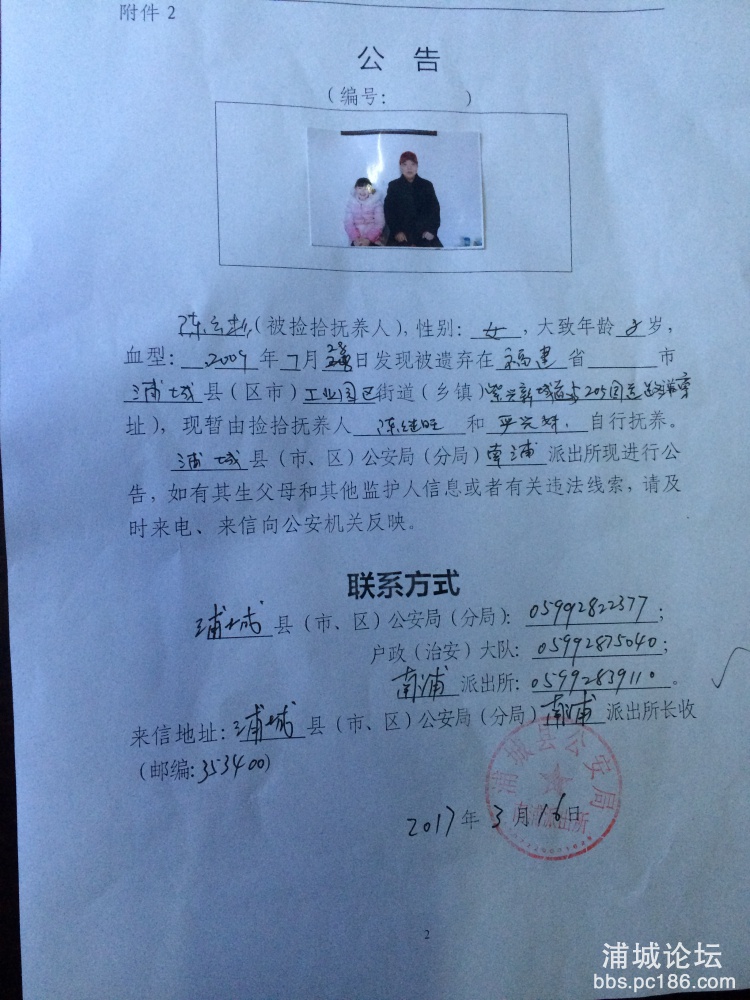 附件 2
公 告
(编号: )
陈 (被捡拾抚养人), 性别: 女 , 大致年龄 岁,
血型: 2009 年 7 月 日发现被遗弃在 福建 省 市
浦城 县(区市) 工业园区街道(乡镇)
址), 现暂由捡拾抚养人 陈继旺 和 自行抚养。
浦城 县(市、区)公安局(分局) 南浦 派出所现进行公
告, 如有其生父母和其他监护人信息或者有关违法线索, 请及
时来电、来信向公安机关反映。
联系方式
浦城 县(市、区)公安局(分局): 05992822377;
户政(治安)大队: 05992875040;
南浦 派出所: 05992839110。
来信地址: 浦城 县(市、区)公安局(分局) 南浦 派出所长收
(邮编: 353400)
浦城县公安局
南浦派出所
2017 年 3 月 16 日
2
浦城论坛
bbs.pc186.com